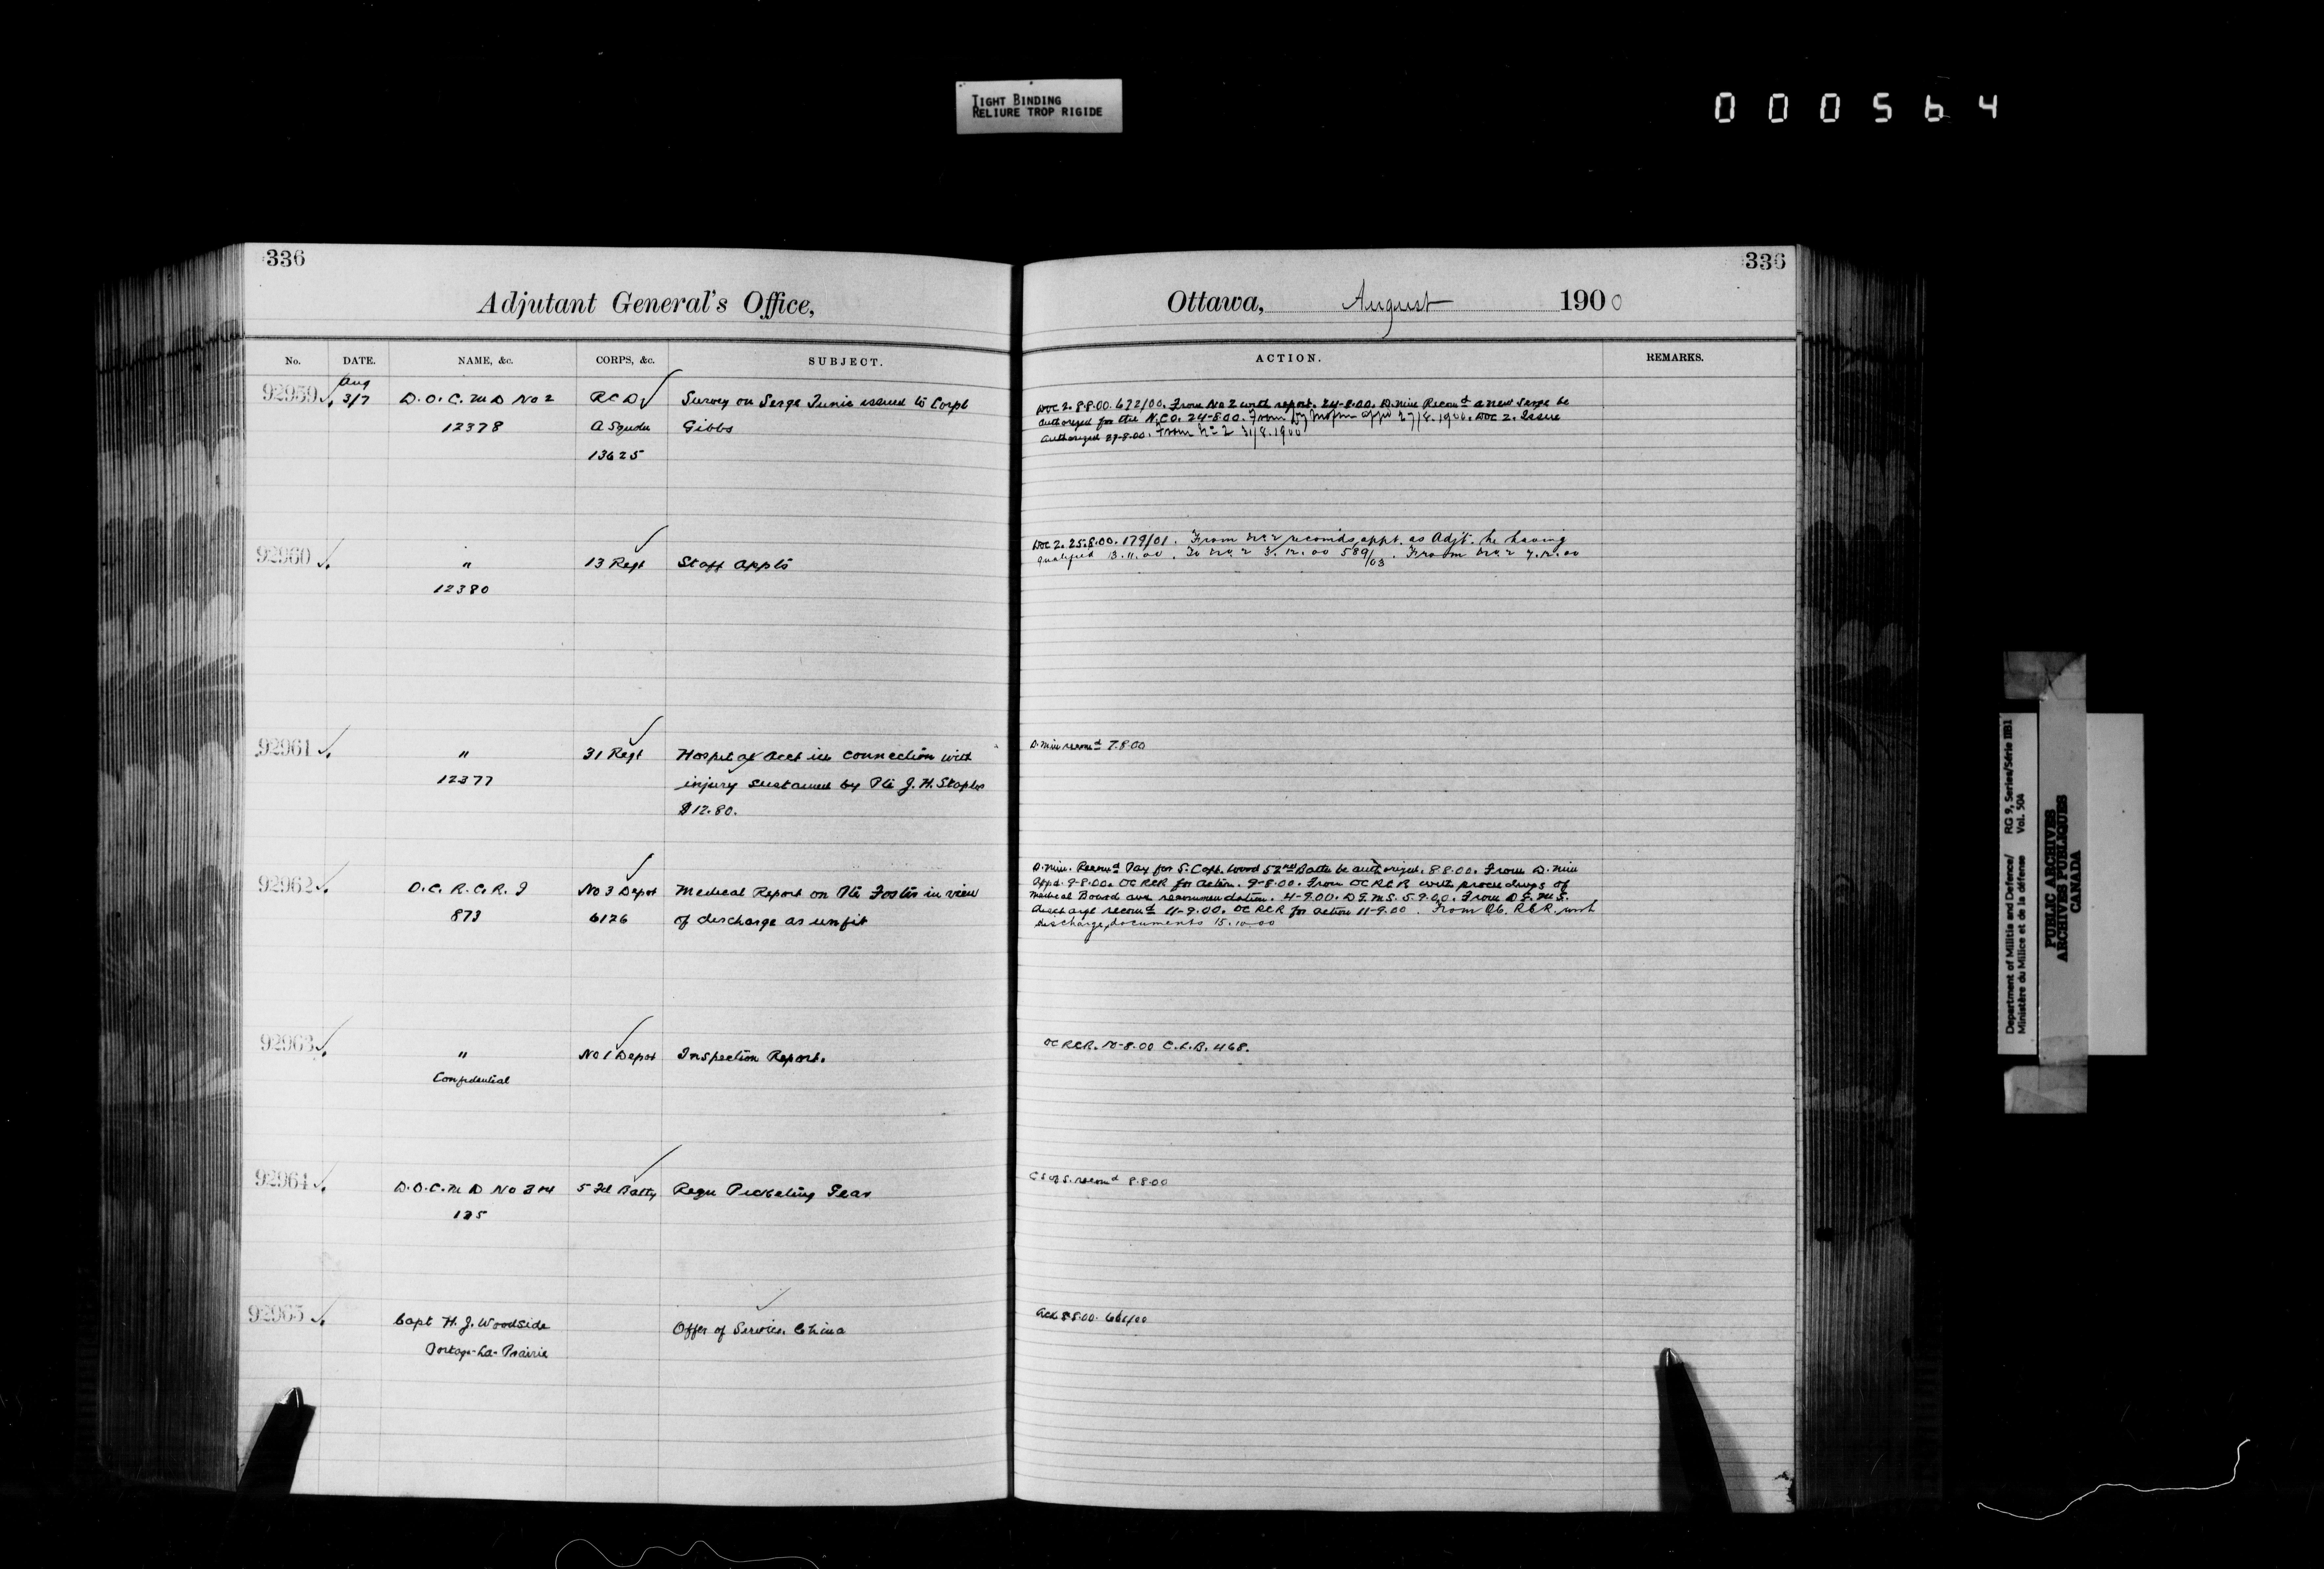 TIGHT BINDING
RELIURE TROP RIGIDE
000564
336
Adjutant General's Office,
No. DATE. NAME, &c. CORPS, &c. SUBJECT.
Aug
92959 3/7 D.O.C. M D No 2 RCD Survey on Serge Tunic issued to Corpl
12378 A Squdn Gibbs
13625
92960 " 13 Regt Staff Appts
12380
92961 " 31 Regt Hospital acct in connection with
12377 injury sustained by Pte J. H. Staples
$12.80.
92962 O.C. R.C.R. I No 3 Depot Medical Report on Pte Foster in view
873 6126 of discharge as unfit
92963 " No 1 Depot Inspection Report.
Confidential
92964 D.O.C. M D No 3 & 4 5 Fd Batty Regn Picketing Gear
125
92965 Capt H. J. Woodside Offer of Service. China
Portage-La-Prairie
336
Ottawa, August 1900
ACTION. REMARKS.
DOC 2. 8-8-00. 672/00. From No 2 with report. 24-8-00. D. Min Recomd a new serge be
authorized for the N.C.O. 24-8-00. From 27/8.1900. DOC 2. Issue
authorized 29-8-00. From No 2 31/8.1900
DOC 2. 25.8.00. 179/01. From No. 2 recomds appt. as Adjt. he having
qualified 13.11.00. To No. 2 3.12.00 589/03. From No. 2 7.12.00
D. Min recomd 7.8.00
D. Min. Recomd Pay for S. Capt. Wood 52nd Battn be authorized. 8.8.00. From D. Min
Appd. 9-8-00. OC RCR for action. 9-8-00. From OC RCR with proceedings of
Medical Board and recommendation. 4-9.00. D G.M.S. 5-9-00. From D G.M.S.
discharge recomd 11-9.00. OC RCR for action 11-9.00. From OC. RCR. with
discharge documents 15.10.00
OC RCR. 10-8.00 C.L.B. 468.
recomd 8.8.00
Ack 8.8.00.
Department of Militia and Defence/ RG 9, Series/Série IIB1
Ministère du Milice et de la défense Vol. 504
PUBLIC ARCHIVES
ARCHIVES PUBLIQUES
CANADA